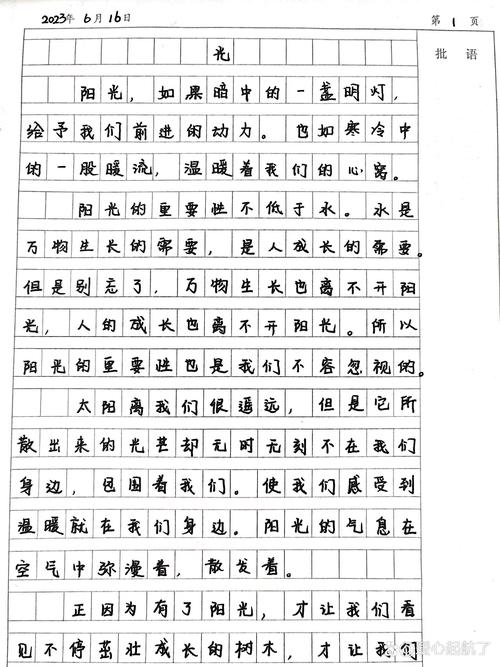 2023年 6月 16日 第 1 页
批 语
光
阳光，如果暗中的一盏明灯，
给予我们前进的动力。也如寒冷中
的一股暖流，温暖着我们的心窝。
阳光的重要性不低于水。水是
万物生长的需要，是人成长的需要。
但是别忘了，万物生长也离不开阳
光，人的成长也离不开阳光。所以
阳光的重要性也是我们不容忽视的。
太阳离我们很遥远，但是它所
散出来的光甚却无时无刻不在我们
身边，包围着我们。使我们感受到
温暖就在我们身边。阳光的气息在
空气中弥漫着，散发着。
正因为有了阳光，才让我们看
见不停茁壮成长的树木，才让我们
心起航了